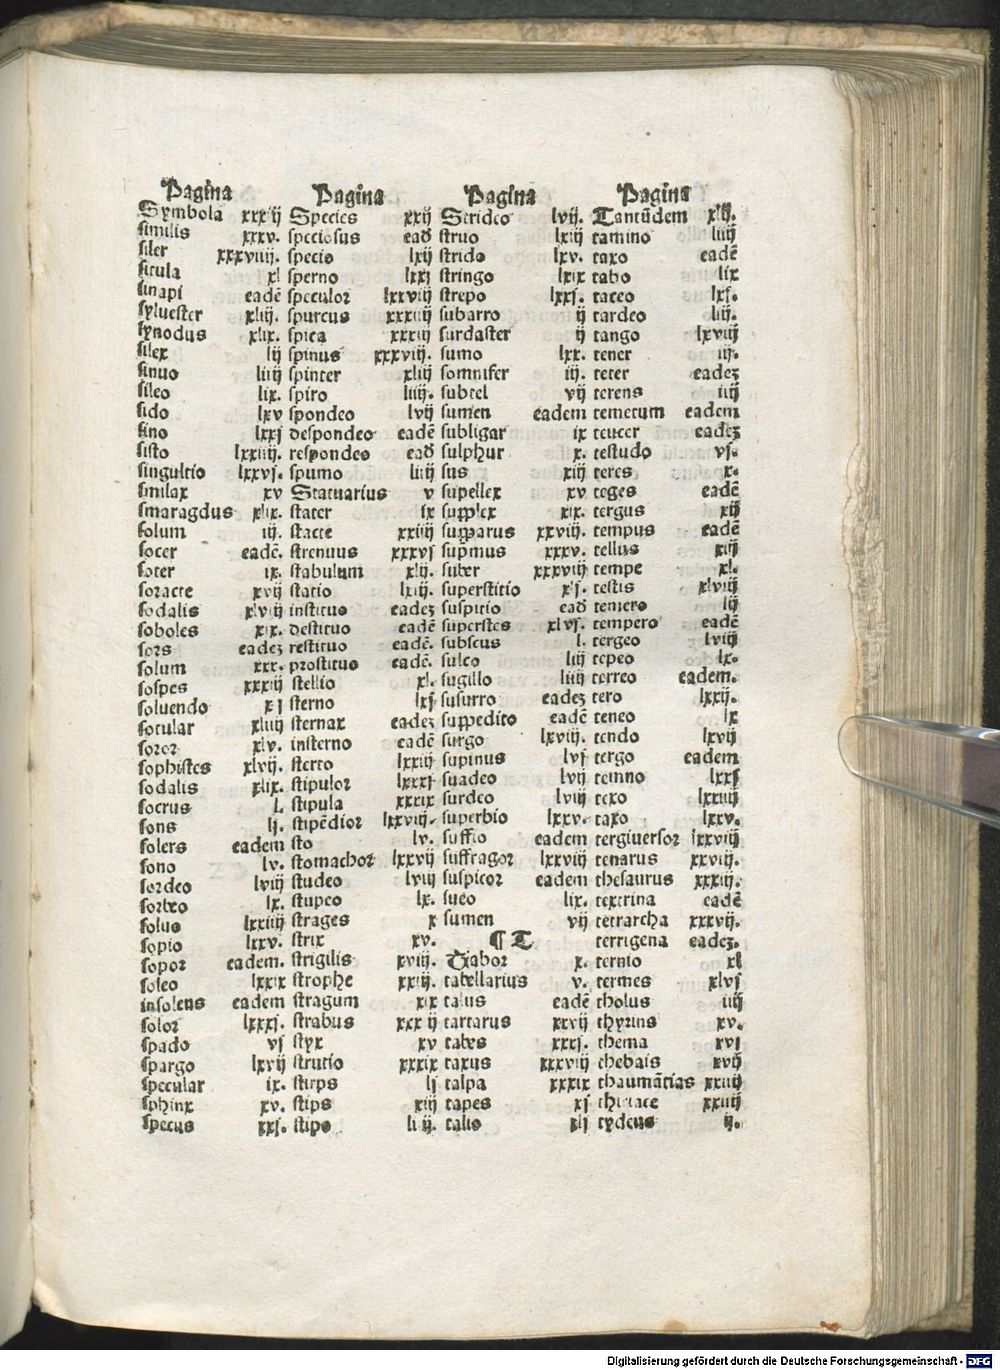 Pagina
Symbola xxxij
similis xxxv.
siler xxxviiij.
situla xl
sinapi eadē
syluester xliij.
synodus xlix.
silex lij
sinuo liiij
sileo lix.
sido lxv
sino lxxj
sisto lxxiiij.
singultio lxxvj.
smilax xv
smaragdus xlix.
solum iij.
socer eadē.
soter ix.
soracte xvij
sodalis xlviij
soboles xix.
sors eadeꝫ
solum xxx.
sospes xxxiij
soluendo xj
sotular xliiij
soror xlv.
sophistes xlvij.
sodalis xlix.
socrus l.
sons lj.
solers eadem
sono lv.
sordeo lviij
sorbeo lx.
soluo lxxiiij
sopio lxxv.
sopor eadem.
soleo lxxix
insolens eadem
solor lxxxj.
spado vj
spargo lxvij
specular ix.
sphinx xv.
specus xxj.
Pagina
Species xxij
speciosus ead
specio lxij
sperno lxxj
speculor lxxviij
spurcus xxxiiij
spica xxxiij
spinus xxxviij.
spinter xliij
spiro liiij.
spondeo lvij
despondeo eadē
respondeo ead
spumo liiij
Statuarius v
stater ix
stacte xxiiij
strenuus xxxvj
stabulum xlij.
statio lxiij.
instituo eadeꝫ
destituo eadē
restituo eadē.
prostituo eadē.
stellio xl.
sterno lxj
sternax eadeꝫ
insterno eadē
sterto lxxiij
stipulor lxxxj
stipula xxxix
stipēdior lxxviij.
sto lv.
stomachor lxxvij
studeo lviij
stupeo lx.
strages x
strix xv.
strigilis xviij.
strophe xxiij.
stragum xix
strabus xxxij
styx xv
strutio xxxix
stirps lj
stips xiij
stipo liij.
Pagina
Strideo lvij.
struo lxiij
strido lxv.
stringo lxix
strepo lxxj.
subarro ij
surdaster ij
sumo lxx.
somnifer iij.
subtel vij
sumen eadem
subligar ix
sulphur x.
sus xiij
supellex xv
supplex xix.
supparus xxviij.
supmus xxxv.
suber xxxviij
superstitio xlj.
suspitio ead
superstes xlvj.
subseus l.
sulco liij
sugillo liiij
susurro eadeꝫ
suppedito eadē
surgo lxviij.
supinus lvj
suadeo lvij
surdeo lviij
superbio lxxv.
suffio eadem
suffragor lxxviij
suspicor eadem
sueo lix.
sumen vij
¶ T
Tabor x.
tabellarius v.
talus eadē
tartarus xxvij
tabes xxxj.
taxus xxxviij
talpa xxxix
tapes xj
talio xlj
Pagina
Tantūdem xlij.
tamino liiij
taxo eadē
tabo lix
taceo lxj.
tardeo liij.
tango lxviij
tener iij.
teter eadeꝫ
terens iiij
temetum eadem
teucer eadeꝫ
testudo vj.
teres x.
teges eadē
tergus xij
tempus eadē
tellus xiij
tempe xl.
testis xlviij
temero lij
tempero eadē
tergeo lviij
tepeo lx.
terreo eadem.
tero lxxij.
teneo lx
tendo lxvij
tergo eadem
temno lxxj
texo lxxiiij
taxo lxxv.
tergiuersor lxxviij
tenarus xxviij.
thesaurus xxxiij.
textrina eadē
tetrarcha xxxvij.
terrigena eadeꝫ.
ternio xl
termes xlvj
tholus iiij
thyrius xv.
thema xvj
thebais xvij
thaumātias xxiiij
thiriace xxiiij
tydeus ij.
Digitalisierung gefördert durch die Deutsche Forschungsgemeinschaft - DFG